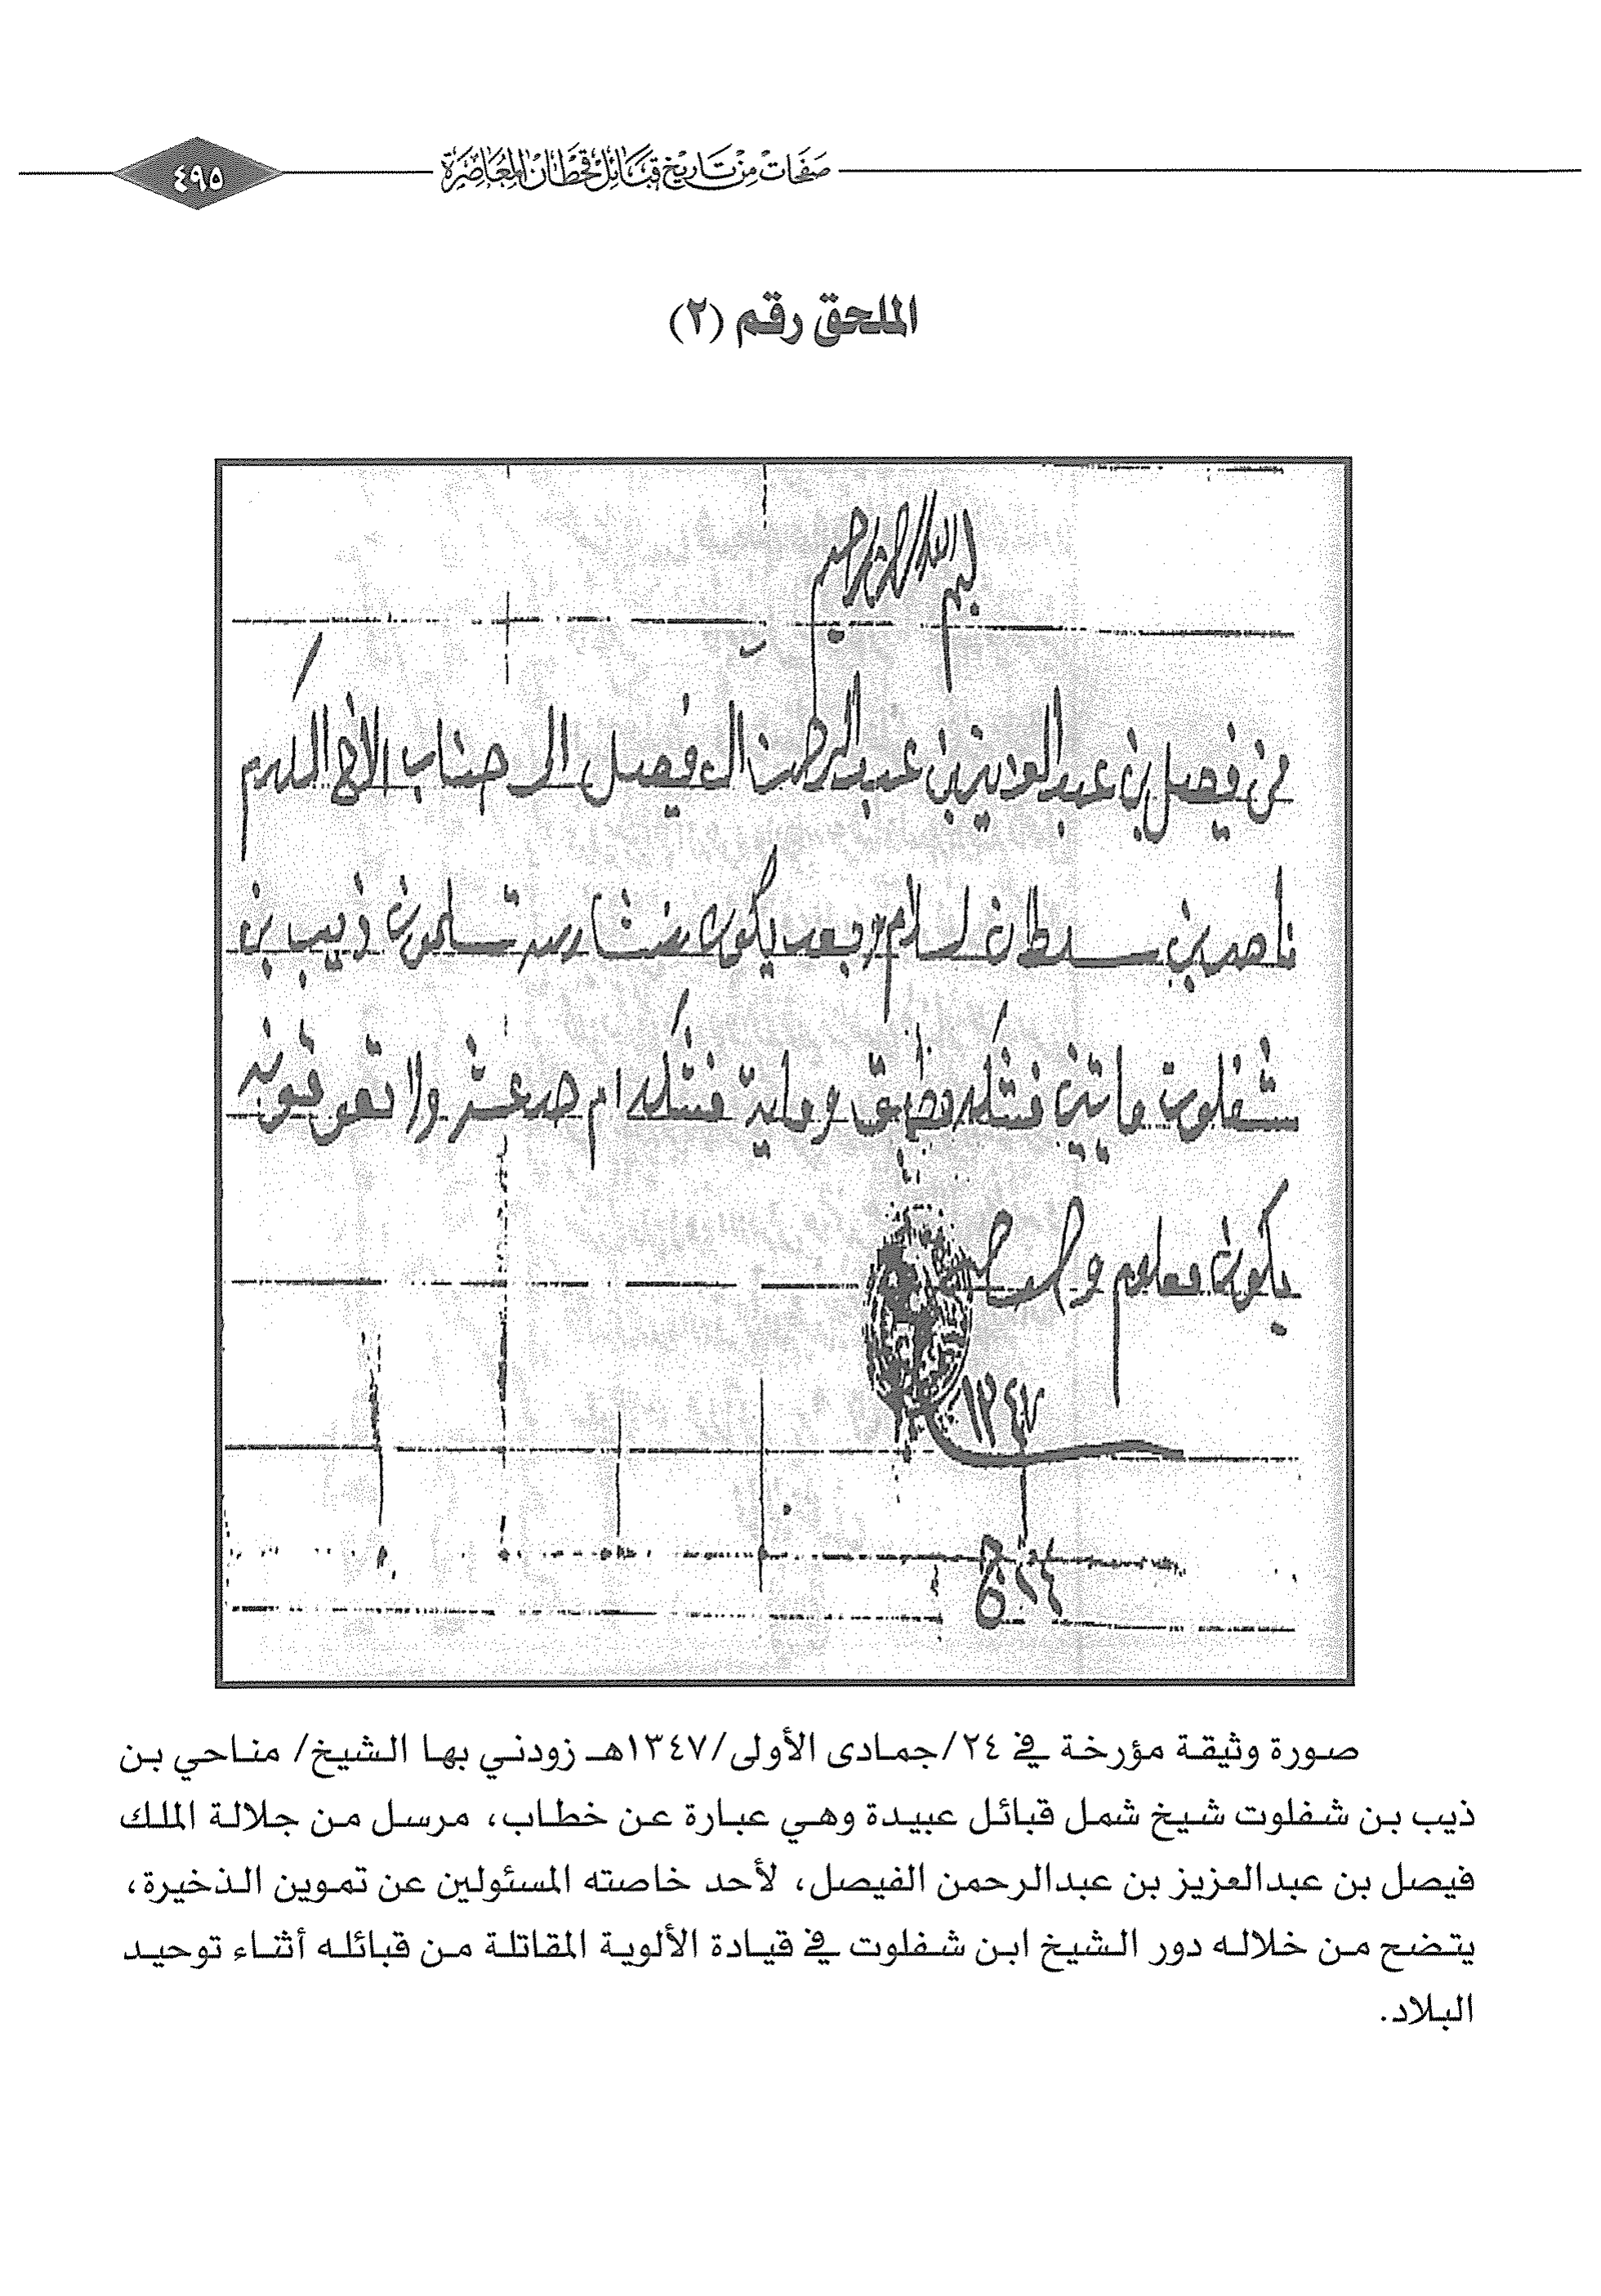 صفحات من تاريخ قبائل قحطان المعاصرة
٤٩٥
الملحق رقم (٢)
بسم الله الرحمن الرحيم
من فيصل بن عبد العزيز بن عبد الرحمن ال فيصل الى جناب الأخ المكرم
ناصر بن سلطان سلام وبعد يكون تسلمون ذيب بن
شفلوت مايتين فشكه وماية فشكه ام عشر ولا تعوقونه
يكون معلوم والسلام
١٣٤٧
٢٤ ج
صورة وثيقة مؤرخة في ٢٤/جمادى الأولى/١٣٤٧هـ زودني بها الشيخ/ مناحي بن
ذيب بن شفلوت شيخ شمل قبائل عبيدة وهي عبارة عن خطاب، مرسل من جلالة الملك
فيصل بن عبدالعزيز بن عبدالرحمن الفيصل، لأحد خاصته المسئولين عن تموين الذخيرة،
يتضح من خلاله دور الشيخ ابن شفلوت في قيادة الألوية المقاتلة من قبائله أثناء توحيد
البلاد.